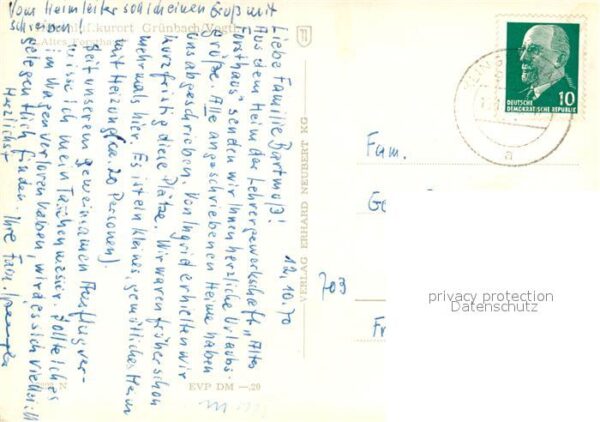 Vom Heimleiter soll ich einen Gruß mit
schreiben!
Grünbach/Vogtl.
"Altes Forsthaus"
12.10.70
Liebe Familie Bartmuß!
Aus dem Heim der Lehrergewerkschaft „Altes
Forsthaus" senden wir Ihnen herzliche Urlaubs-
grüße. Alle angeschriebenen Heime haben
uns abgeschrieben. Von Ingrid erhielten wir
kurzfristig diese Plätze. Wir waren früher schon
mehrmals hier. Es ist ein kleines, gemütliches Heim
mit Heizung (ca. 20 Personen).
Seit unserem gemeinsamen Ausflug ver-
misse ich mein Taschenmesser. Sollte ich es
im Wagen verloren haben, wird es sich vielleicht
gelegentlich finden. Ihre Fam.
Herzlichst
VERLAG ERHARD NEUBERT KG
EVP DM —.20
DEUTSCHE
DEMOKRATISCHE REPUBLIK
10
a
Fam.
Ge
703
Fr
privacy protection
Datenschutz